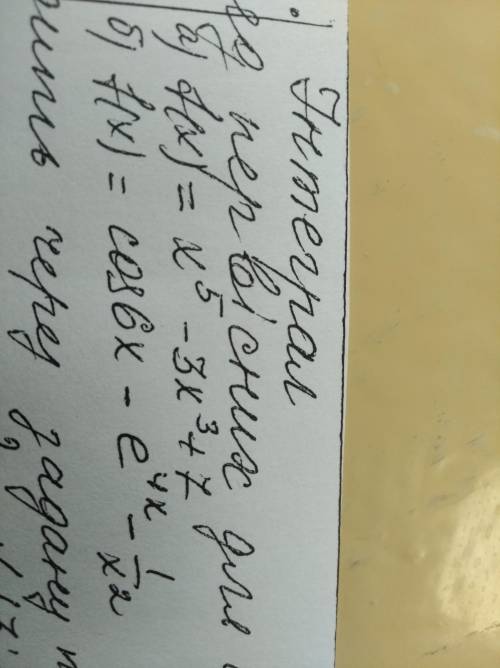 Інтеграл
первісних для
а) f(x) = x⁵ - 3x³ + 7
б) f(x) = cos6x - e⁴ˣ - 1/x²
через задану